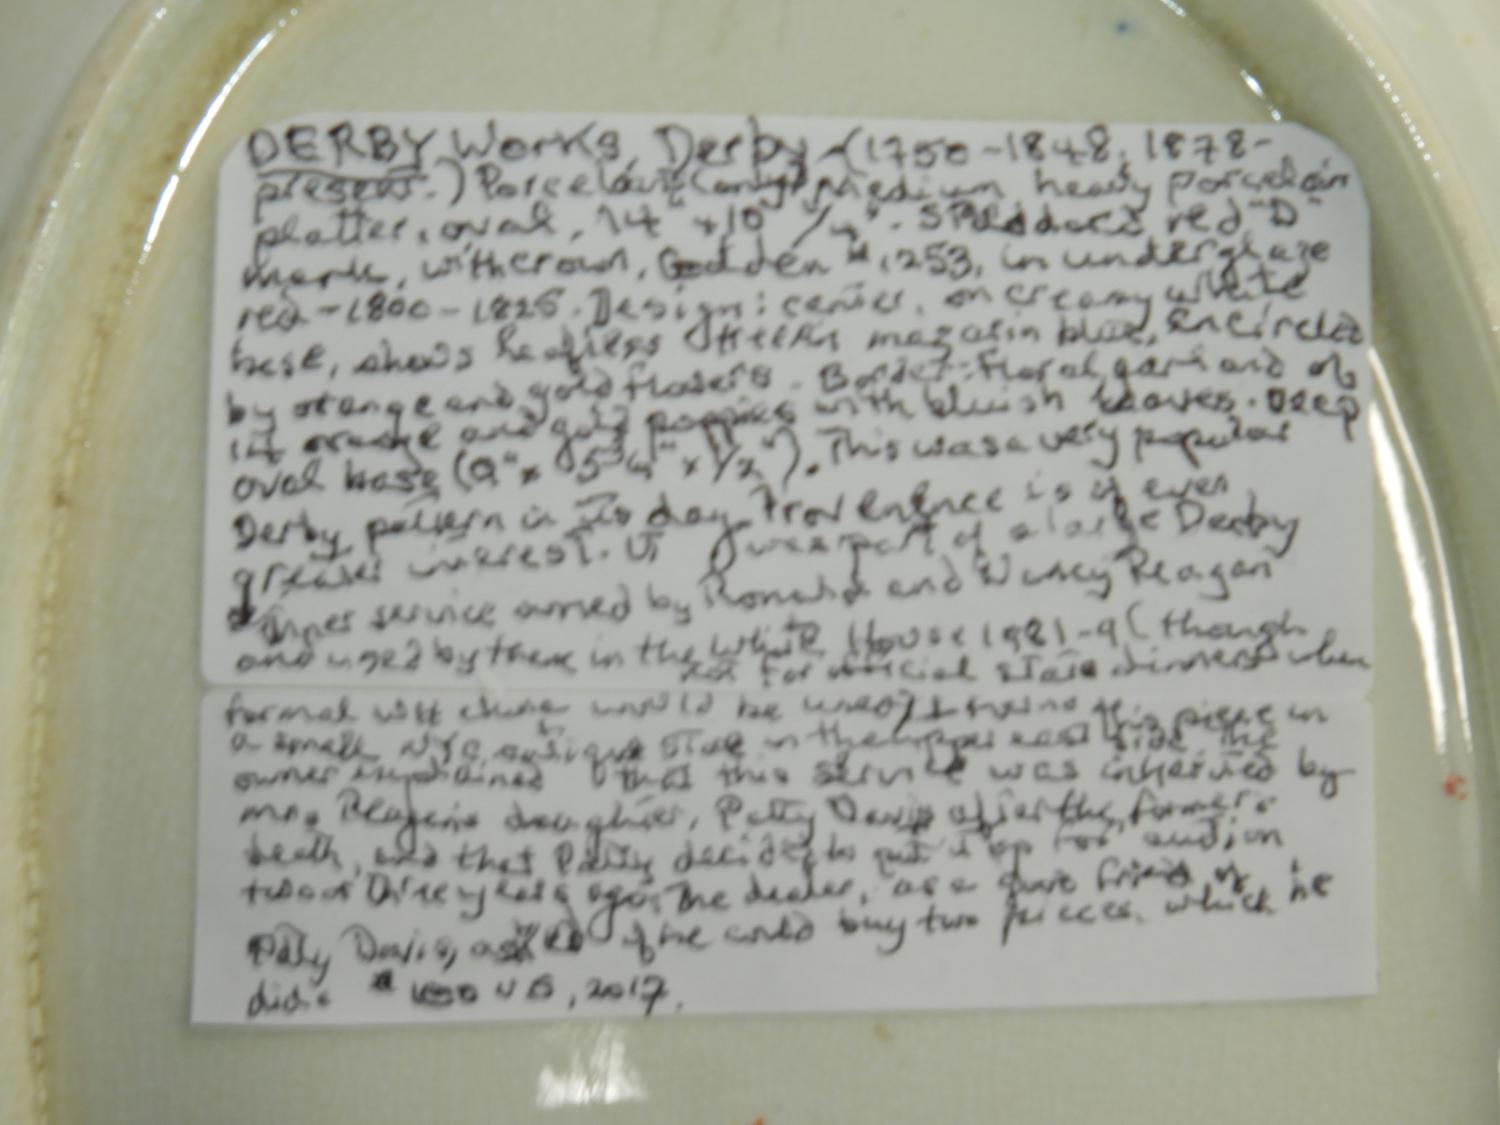 DERBY Works, Derby (1750-1848, 1878-
present.) Porcelain Medium heavy porcelain
platter, oval, 14" x 10 1/4". red "D"
mark, with crown, Godden # 1253, in underglaze
red - 1800-1825. Design: center, on creamy white
base, shows leafless magasin blue, encircled
by orange and gold flowers. Border: floral garland of
14 orange and gold poppies with bluish leaves. Deep
oval base (9" x 5 3/4" x 1/2"). This was a very popular
Derby pattern in its day. Provenence is of even
greater interest. It was part of a large Derby
dinner service owned by Ronald and Nancy Reagan
and used by them in the White House 1981-9 (though
not for official state dinners when
formal would be used) I found this piece in
a small NYC antique store in the upper east side. The
owner explained that this service was inherited by
Mrs. Reagan's daughter, Patty Davis after the former's
death, and that Patty decided to put it up for auction
two or three years ago. The dealer, as a friend of
Patty Davis, asked if he could buy two pieces, which he
did. US, 2017.